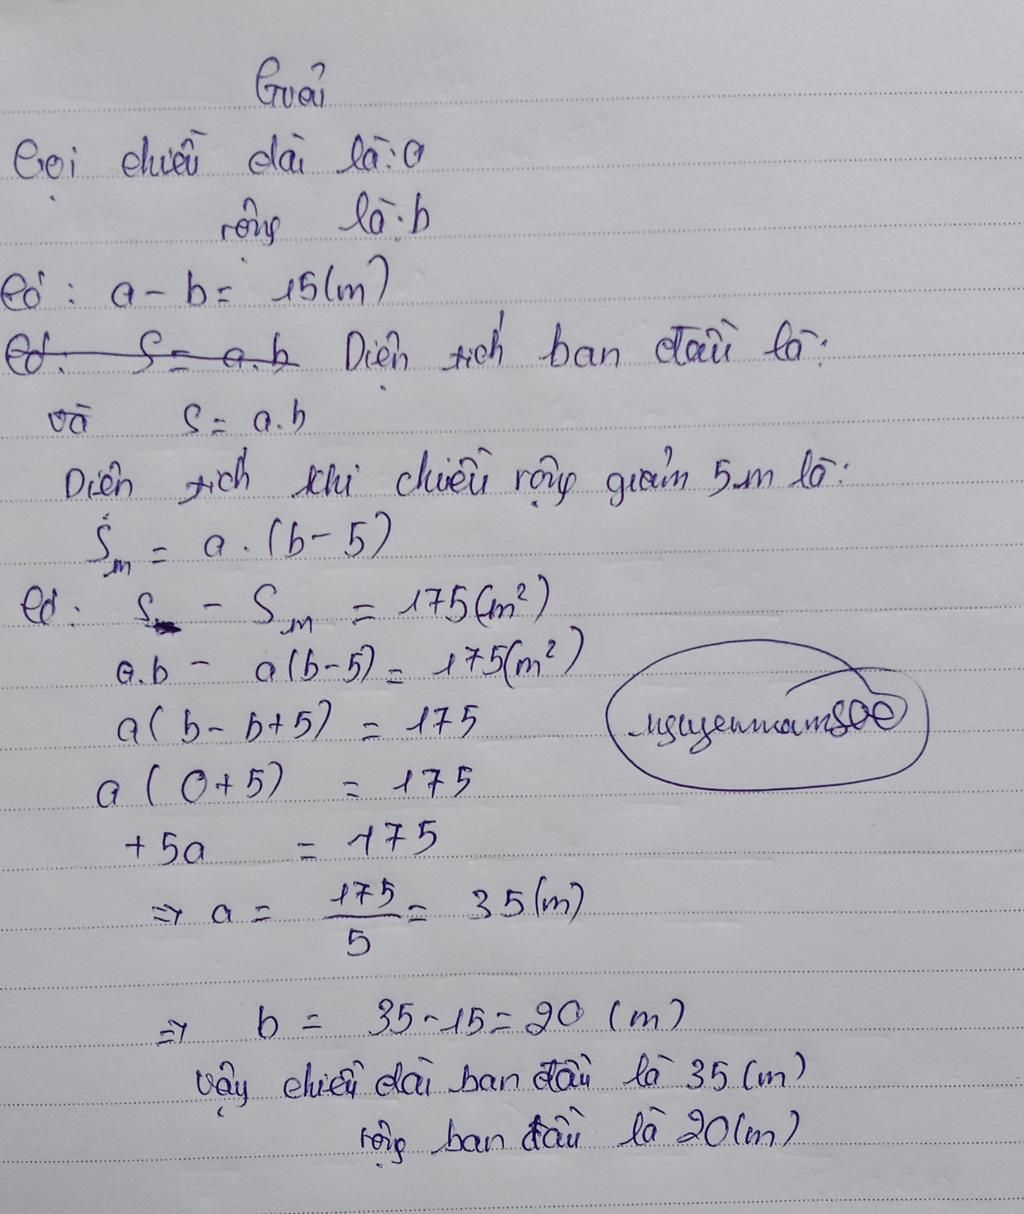 Giải
Gọi chiều dài là: a
rộng là: b
Có: a - b = 15(m)
Có: S = a.b Diện tích ban đầu là:
và S = a.b
Diện tích khi chiều rộng giảm 5m là:
Sₘ = a.(b-5)
Có: S - Sₘ = 175(m²)
a.b - a(b-5) = 175(m²)
a(b-b+5) = 175
nguyennam80e
a(0+5) = 175
+5a = 175
=> a = 175/5 = 35(m)
=> b = 35-15=20 (m)
Vậy chiều dài ban đầu là 35 (m)
rộng ban đầu là 20(m)